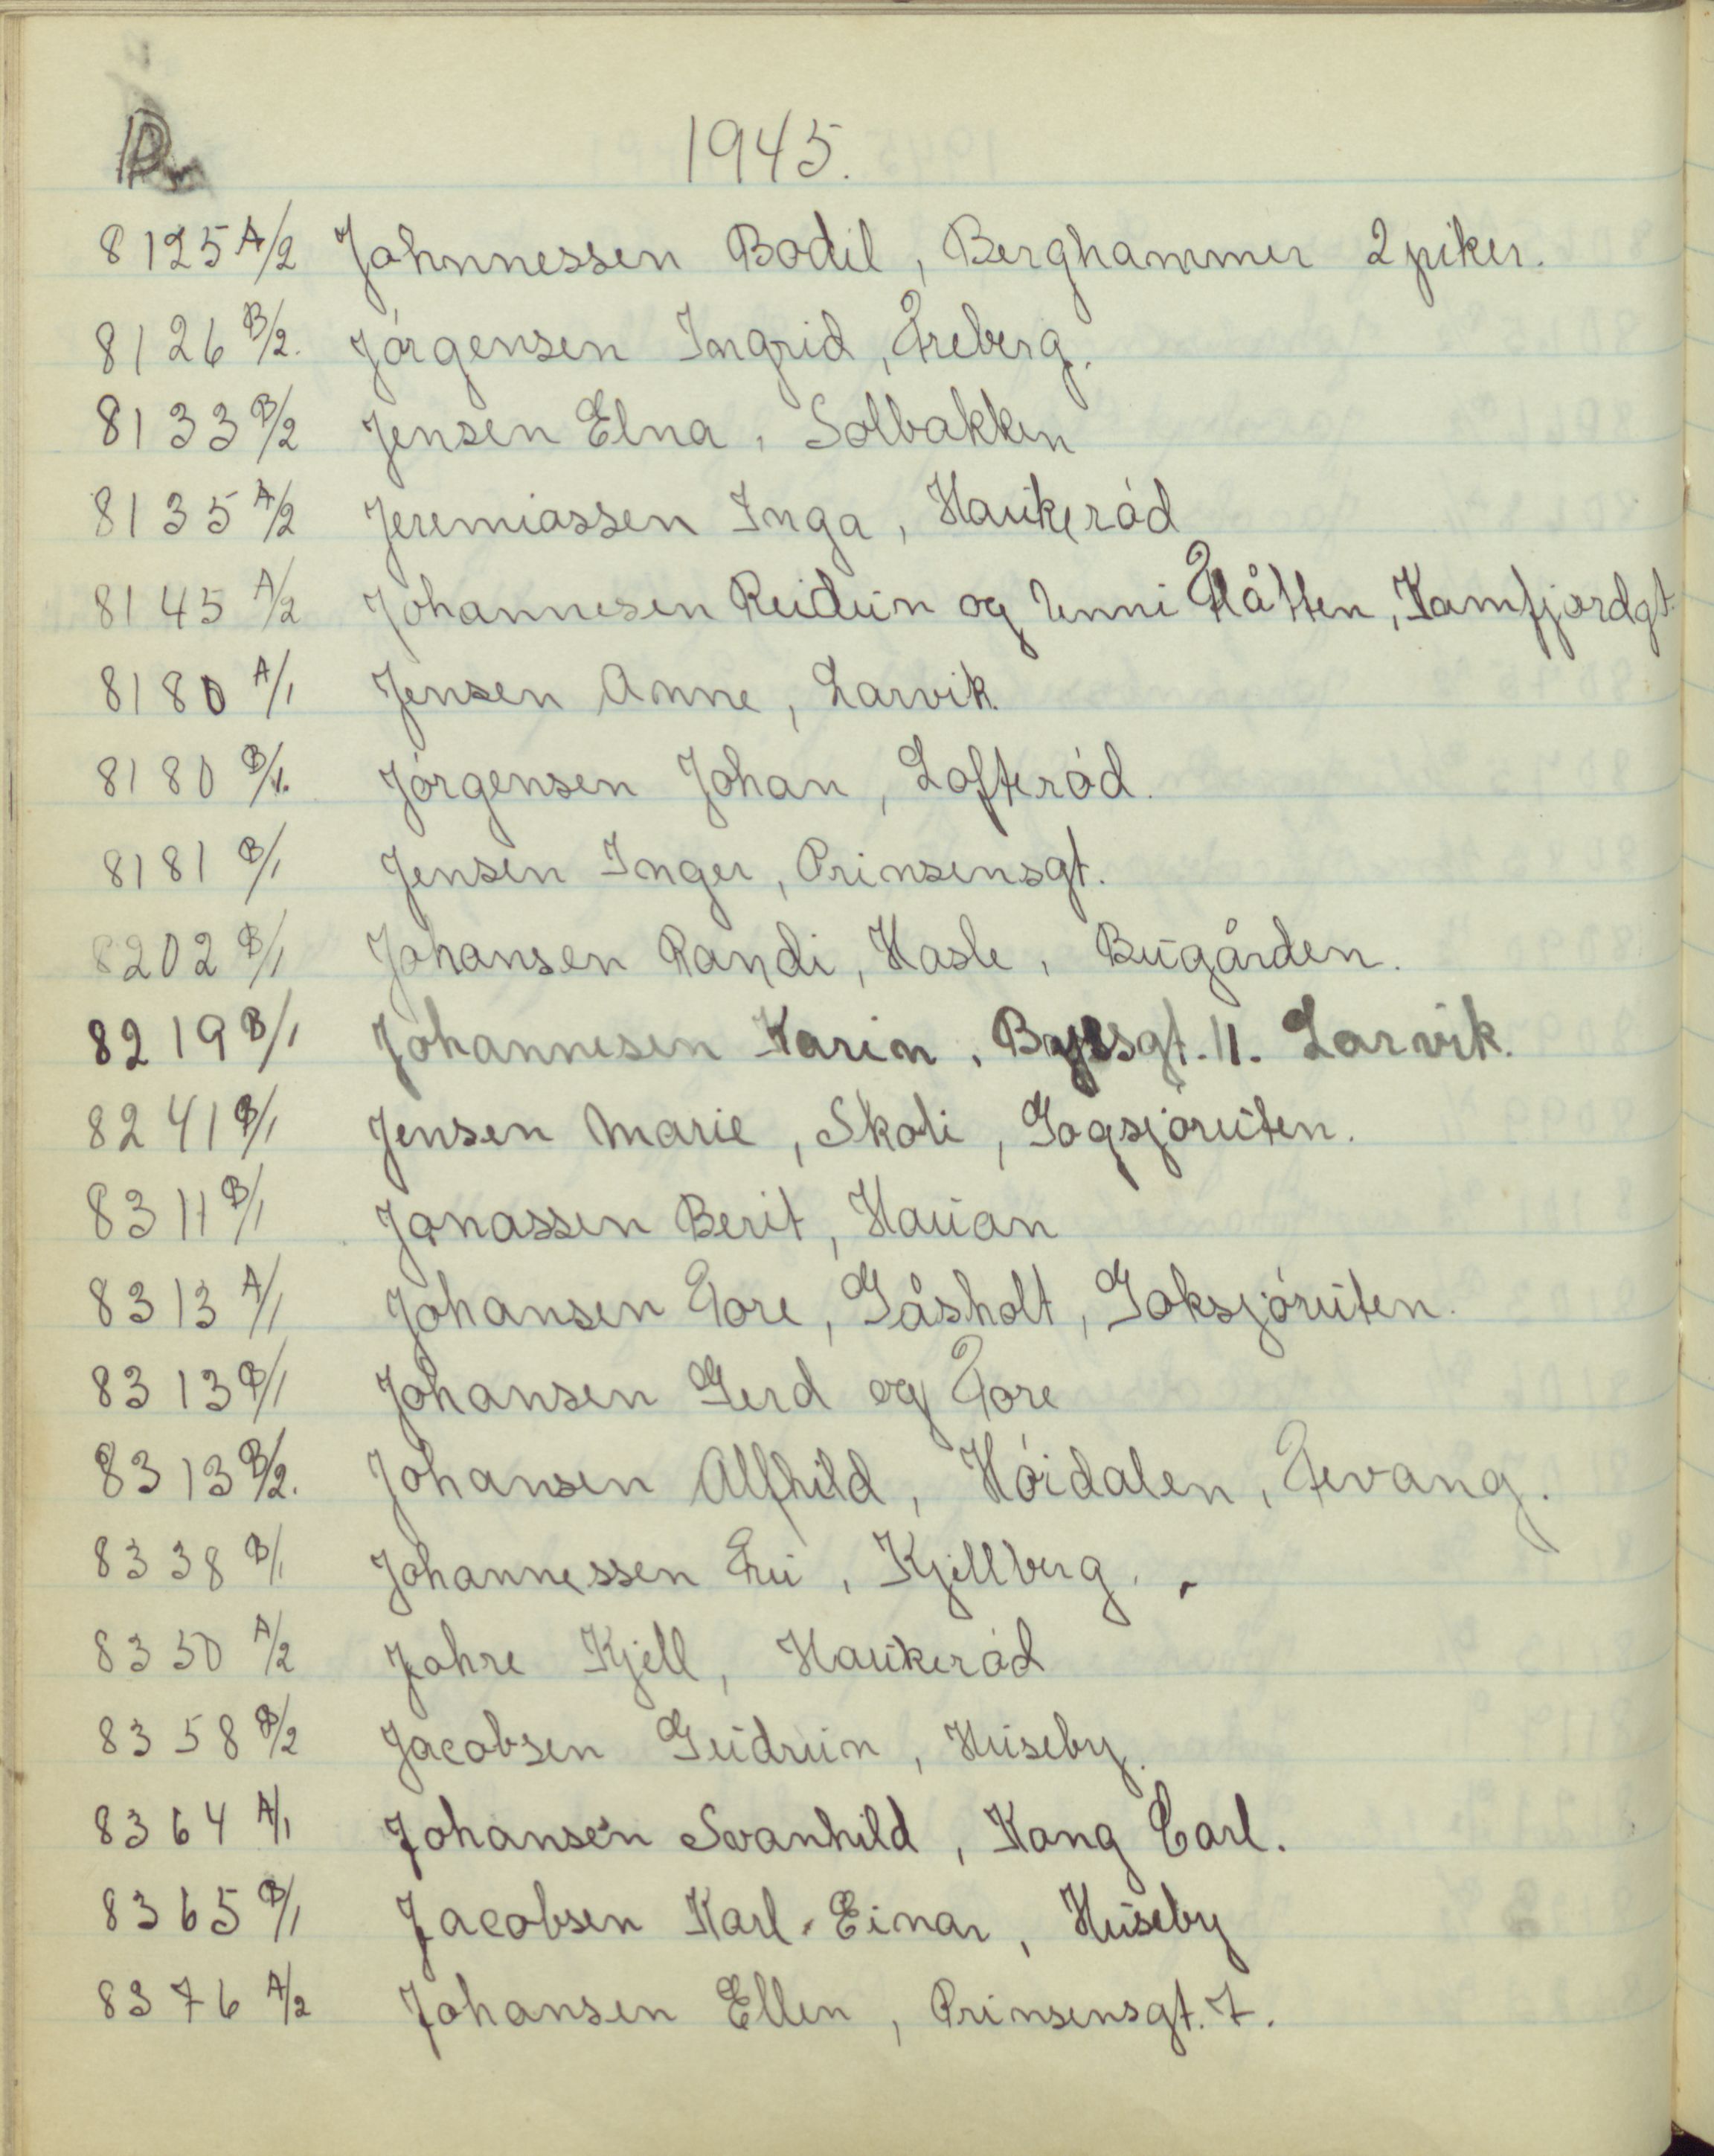 1945.
8125 A/2 Johnnessen Bodil, Berghammer 2 piker.
8126 B/2. Jörgensen Ingrid, Freberg.
8133 B/2 Jensen Elna, Solbakken
8135 A/2 Jeremiassen Inga, Haukeröd
8145 A/2 Johannesen Reidun og Unni Flåtten, Kamfjordgt.
8180 A/1 Jensen Anne, Larvik.
8180 B/1. Jörgensen Johan, Lofteröd.
8181 B/1 Jensen Inger, Prinsensgt.
8202 B/1 Johansen Randi, Hasle, Bugården.
8219 B/1 Johannesen Karin, 11. Larvik.
8241 B/1 Jensen Marie, Skoli, Gogsjöruten.
8311 B/1 Jonassen Berit, Hauan
8313 A/1 Johansen Tore, Gåsholt, Goksjöruten.
8313 B/1 Johansen Gerd og Tore
8313 B/2. Johansen Alfhild, Höidalen, Fevang.
8338 B/1 Johannessen Kjellberg.
8350 A/2 Jahre Kjell, Haukeröd
8358 B/2 Jacobsen Gudrun, Huseby.
8364 A/1 Johansen Svanhild, Kong Carl.
8365 B/1 Jacobsen Karl-Einar, Huseby
8376 A/2 Johansen Ellen, Prinsensgt. 7.